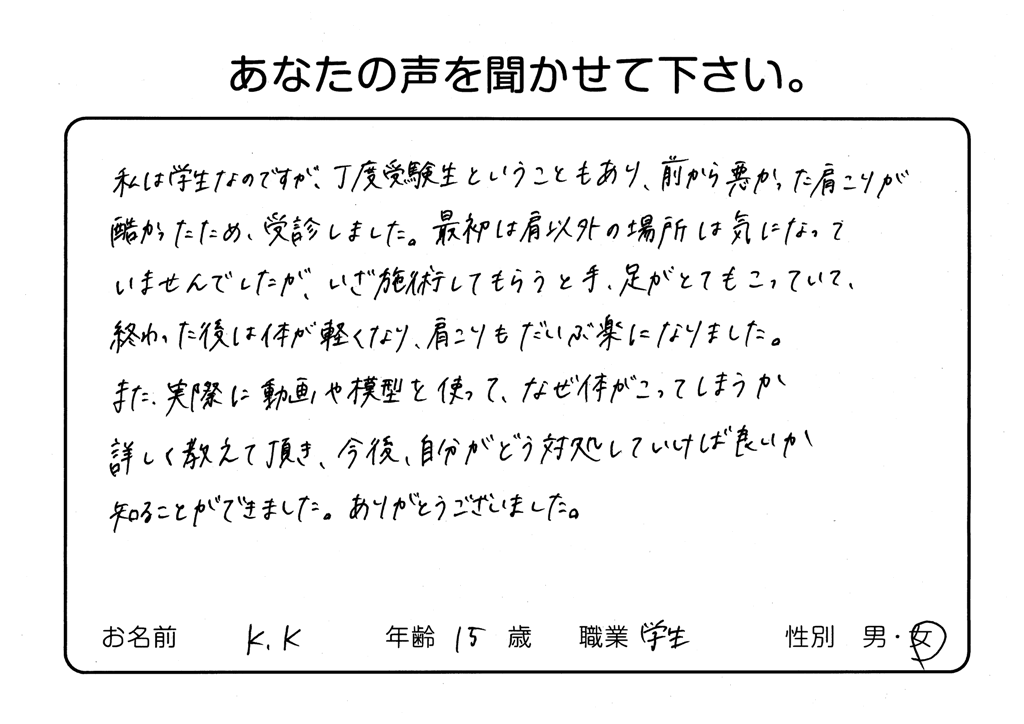 あなたの声を聞かせて下さい。
私は学生なのですが、丁度受験生ということもあり、前から悪かった肩こりが
酷かったため、受診しました。最初は肩以外の場所は気になって
いませんでしたが、いざ施術してもらうと手、足がとてもこっていて、
終わった後は体が軽くなり、肩こりもだいぶ楽になりました。
また、実際に動画や模型を使って、なぜ体がこってしまうか
詳しく教えて頂き、今後、自分がどう対処していけば良いか
知ることができました。ありがとうございました。
お名前 K.K 年齢 15 歳 職業 学生 性別 男・女